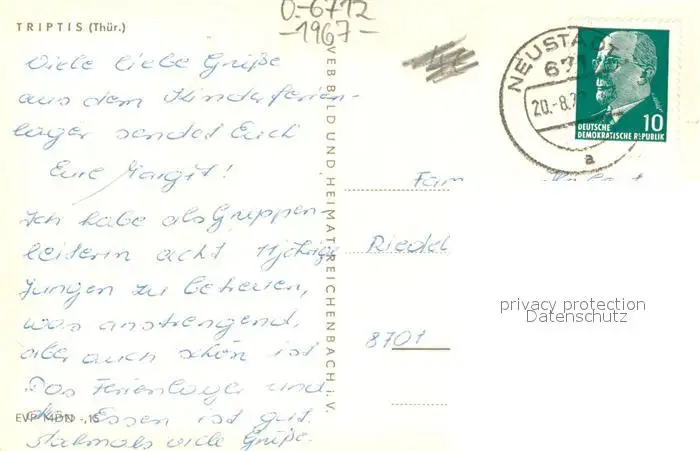 O-6712
-1967-
TRIPTIS (Thür.)
Viele liebe Grüße
aus dem Kinderferien-
lager sendet Euch
Eure Margit!
Ich habe als Gruppen-
leiterin acht 11jährige
Jungen zu betreuen,
was anstrengend,
aber auch schön ist
Das Ferienlager und
das Essen ist gut.
Nochmals viele Grüße.
EVP MDN -,15
VEB BILD UND HEIMAT REICHENBACH i. V.
NEUSTAD
671
20.-8.7
a
DEUTSCHE
DEMOKRATISCHE REPUBLIK
10
Fam
Riedel
8701
privacy protection
Datenschutz